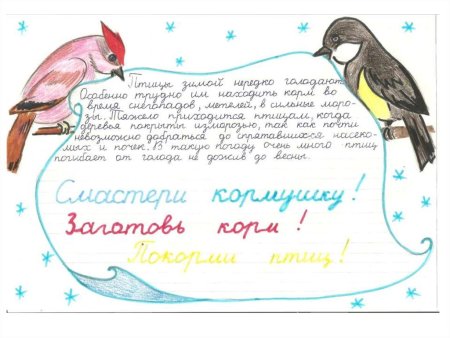 Птицы зимой нередко голодают.
Особенно трудно им находить корм во
время снегопадов, метелей, в сильные моро-
зы. Тяжело приходится птицам, когда
деревья покрыты изморозью, так как почти
невозможно добраться до спрятавшихся насеко-
мых и почек. В такую погоду очень много птиц
погибает от голода не дожив до весны.
Смастери кормушку!
Заготовь корм!
Покорми птиц!